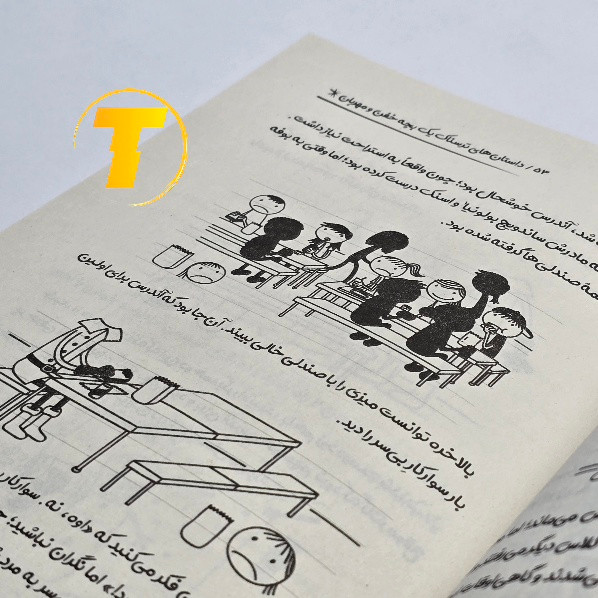 T
۵۲ / داستان‌های ترسناک یک بچه خفن و مهربان *
شد، آندرس خوشحال بود؛ چون واقعاً به استراحت نیاز داشت.
مادرش ساندویچ بولونیا و اسنک درست کرده بود؛ اما وقتی به بوفه
صندلی‌ها گرفته شده بود.
بالاخره توانست میزی را با صندلی خالی ببیند. آن‌جا بود که آندرس برای اولین
بار سوارکار بی‌سر را دید.
فکر می‌کنید که داوه، نه. سوارکار
اما نگران نباشید؛
سر به مرد
می‌ماند؛ اما
کلاس دیگر می‌رفت
می‌شدند و گاهی اوقات